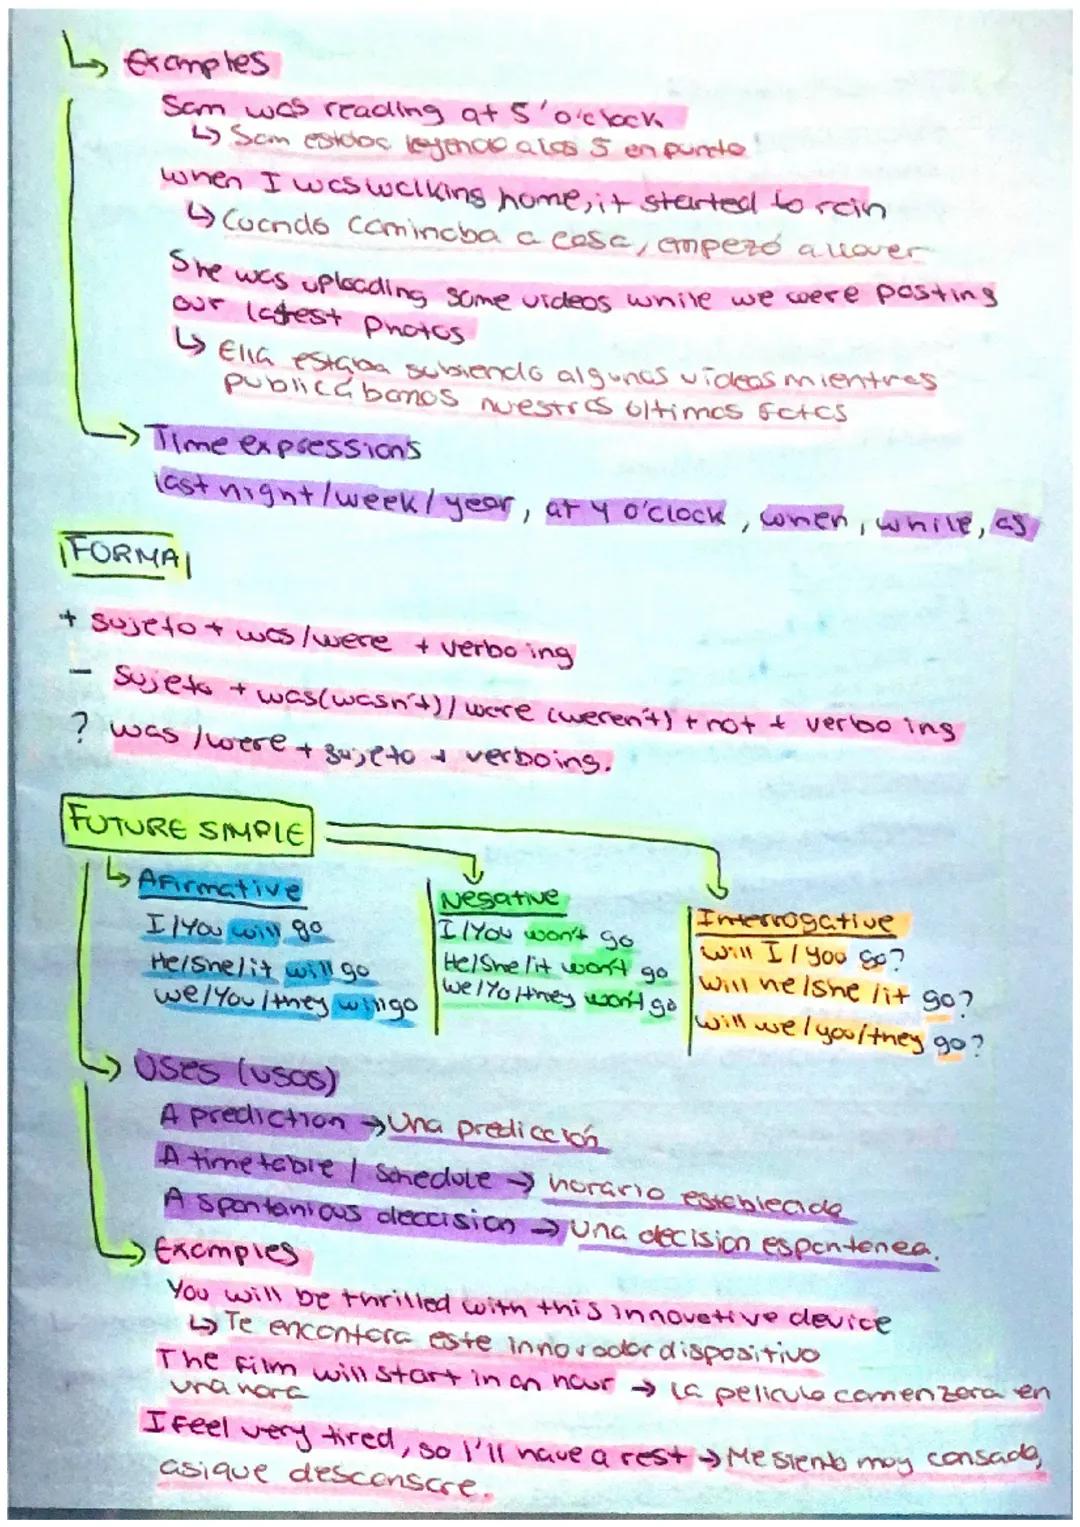 Examples
Sam was reading at 5'o'clock
Sam estaba leyendo a las 5 en punto
when I was walking home, it started to rain
Cuando caminaba a casa, empezó a llover
She was uploading some videos while we were posting
our latest photos
Ella estaba subiendo algunos vídeos mientras
publicábamos nuestras últimas fotos
Time expressions
last night/week/year, at 4 o'clock, when, while, as
FORMA
+ sujeto + was/were + verbo ing
- Sujeto + was(wasn't)/were (weren't) + not + verbo ing
? was/were + sujeto + verboing.
FUTURE SIMPLE
Afirmative Negative Interrogative
I/You will go I/You won't go will I/you go?
He/She/it will go He/She/it won't go will he/she/it go?
we/You/they will go We/Yo/they won't go will we/you/they go?
Uses (usos)
A prediction → Una predicción
A timetable / schedule → horario establecido
A spontanious deccision → Una decision espontanea.
Examples
You will be thrilled with this innovative device
Te encantara este innovador dispositivo
The film will start in an hour → la pelicula comenzara en
una hora
I feel very tired, so I'll have a rest → Me siento muy cansada,
asique descansare.